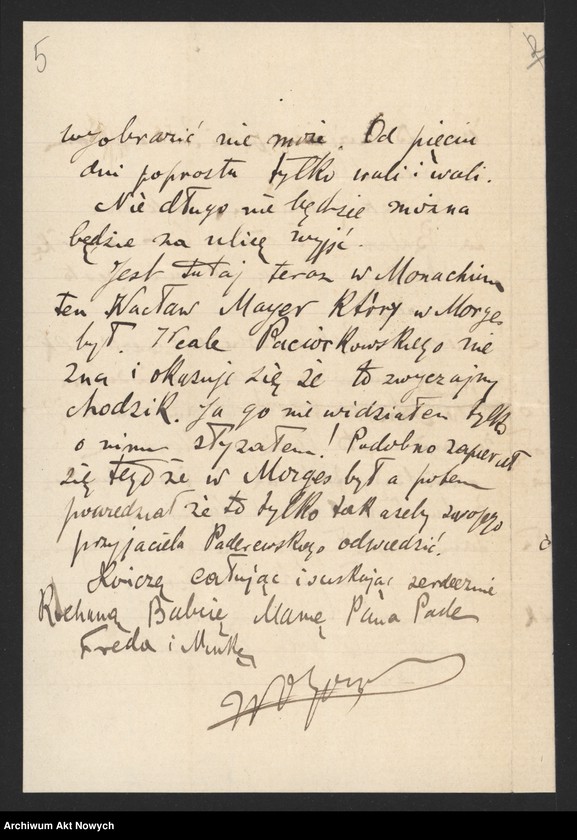 5
wyobrazić nie może. Od pięciu
dni poprostu tylko wali i wali.
Nie długo nie będzie można
będzie na ulicę wyjść.
Jest tutaj teraz w Monachium
ten Wacław Mayer który w Morges
był. Wcale Paciorkowskiego nie
zna i okazuje się że to zwyczajny
chodzik. Ja go nie widziałem tylko
o nim słyszałem! Podobno zapierał
się że w Morges był a potem
powiedział że to tylko tak ażeby swojego
przyjaciela Paderewskiego odwiedzić.
Kończę całując i ściskając serdecznie
Kochaną Babcię Mamę Pana Pade
Freda i
Archiwum Akt Nowych